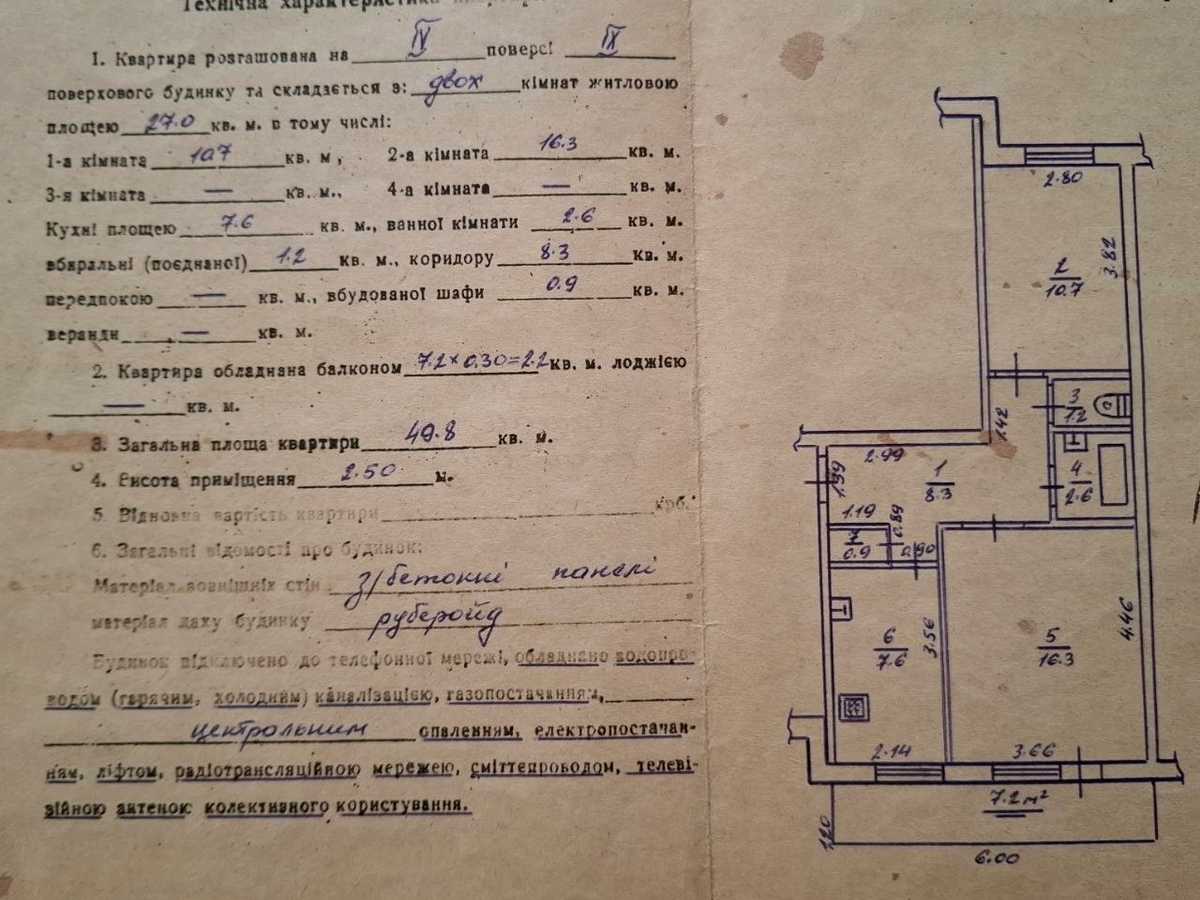 Технічна характеристика
1. Квартира розташована на IV поверсі IX
поверхового будинку та складається з: двох кімнат житловою
площею 27.0 кв. м. в тому числі:
1-а кімната 10.7 кв. м, 2-а кімната 16.3 кв. м.
3-я кімната — кв. м., 4-а кімната — кв. м.
Кухні площею 7.6 кв. м., ванної кімнати 2.6 кв. м.
вбиральні (поєднаної) 1.2 кв. м., коридору 8.3 кв. м.
передпокою — кв. м., вбудованої шафи 0.9 кв. м.
веранди — кв. м.
2. Квартира обладнана балконом 7.2×0.30=2.2 кв. м. лоджією
— кв. м.
3. Загальна площа квартири 49.8 кв. м.
4. Висота приміщення 2.50 м.
5. Відновна вартість квартири крб.
6. Загальні відомості про будинок:
Матеріал зовнішніх стін з/бетонні панелі
матеріал даху будинку рубероїд
Будинок підключено до телефонної мережі, обладнано водопро-
водом (гарячим, холодним) каналізацією, газопостачанням,
центральним опаленням, електропостачан-
ням, ліфтом, радіотрансляційною мережею, сміттєпроводом, телеві-
зійною антеною колективного користування.
2.80
3.82
2
10.7
3
1.2
1.42
2.99
1.99
1
8.3
4
2.6
1.19
0.89
7
0.9
0.90
6
7.6
3.56
5
16.3
4.46
2.14
3.66
7.2 м²
1.20
6.00